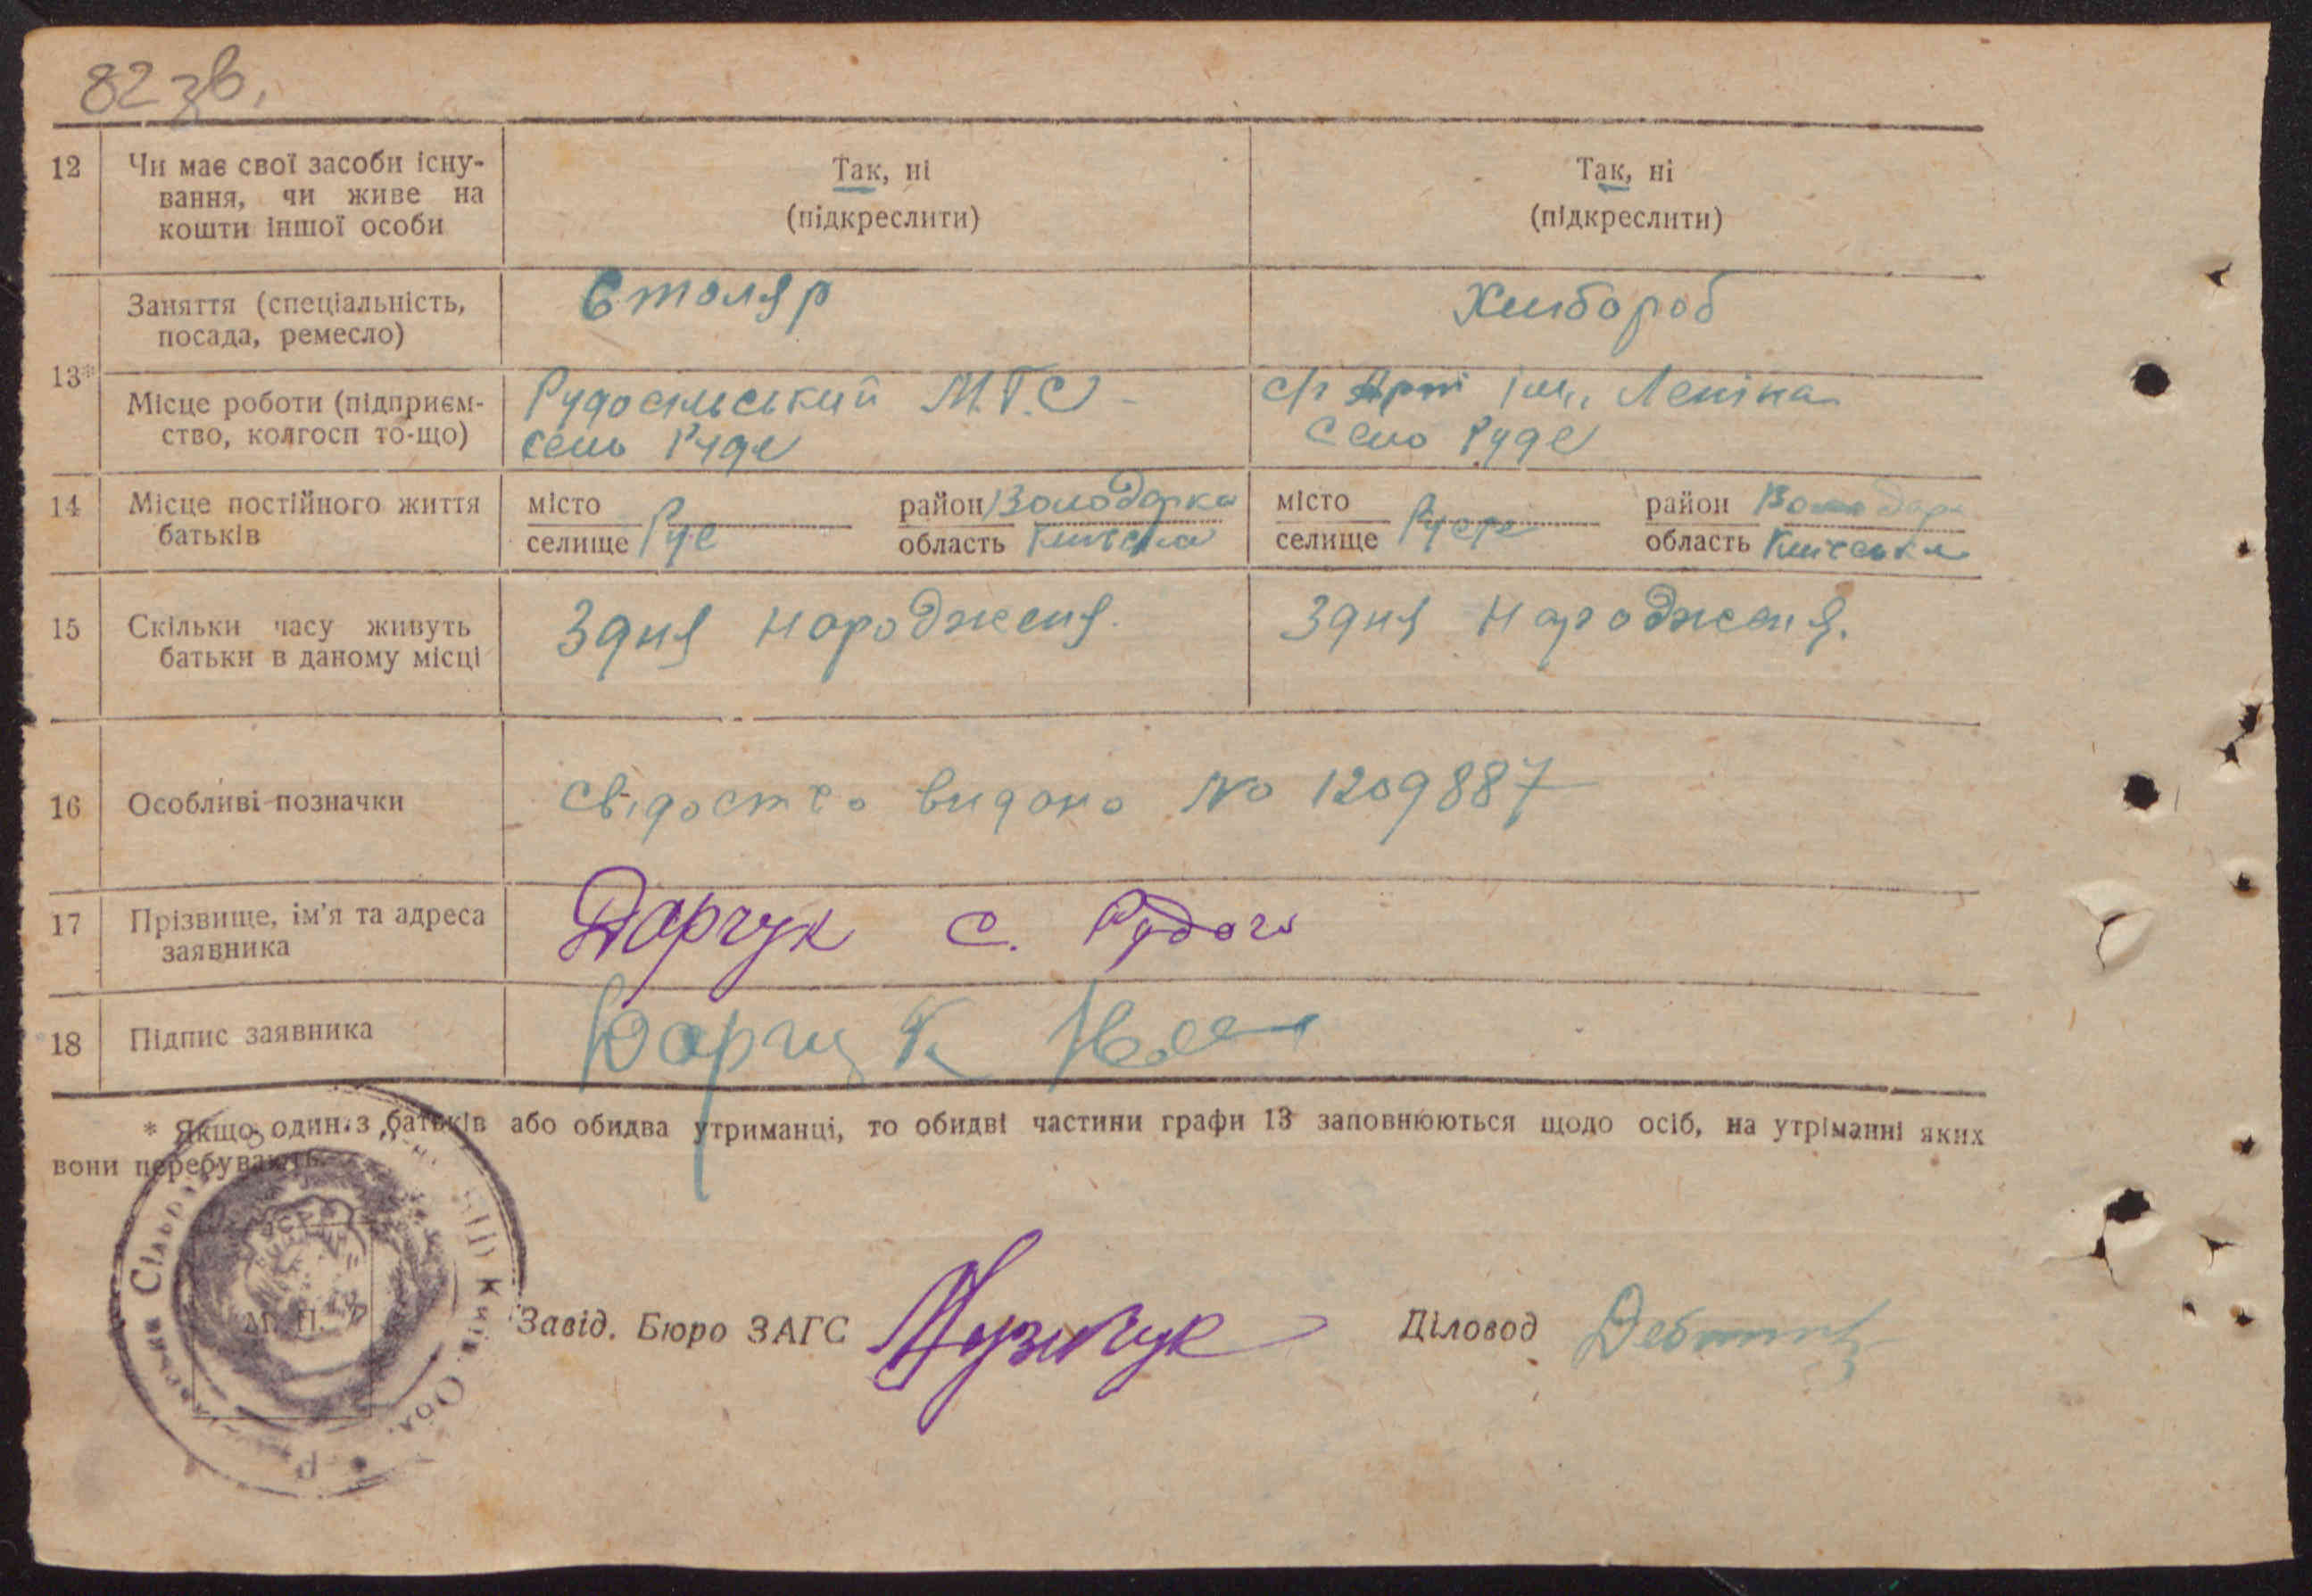 82 зв.
12 Чи має свої засоби існу-
вання, чи живе на
кошти іншої особи
Так, ні
(підкреслити)
Так, ні
(підкреслити)
13*
Заняття (спеціальність,
посада, ремесло)
Столяр
Хлібороб
Місце роботи (підприєм-
ство, колгосп то-що)
Рудосільський М.Т.С
село Руде
с/г Арті ім. Леніна
село Руде
14 Місце постійного життя
батьків
місто
селище
район Володарка
область Київська
місто
селище
район Володар
область Київська
15 Скільки часу живуть
батьки в даному місці
З дня народженя.
З дня народженя.
16 Особливі позначки
свідоство видано № 1209887
17 Прізвище, ім'я та адреса
заявника
Дарчук с. Рудого
18 Підпис заявника
Дарчук
* Якщо один з батьків або обидва утриманці, то обидві частини графи 13 заповнюються щодо осіб, на утріманні яких
вони перебувають.
М. П.
Завід. Бюро ЗАГС Музичук Діловод